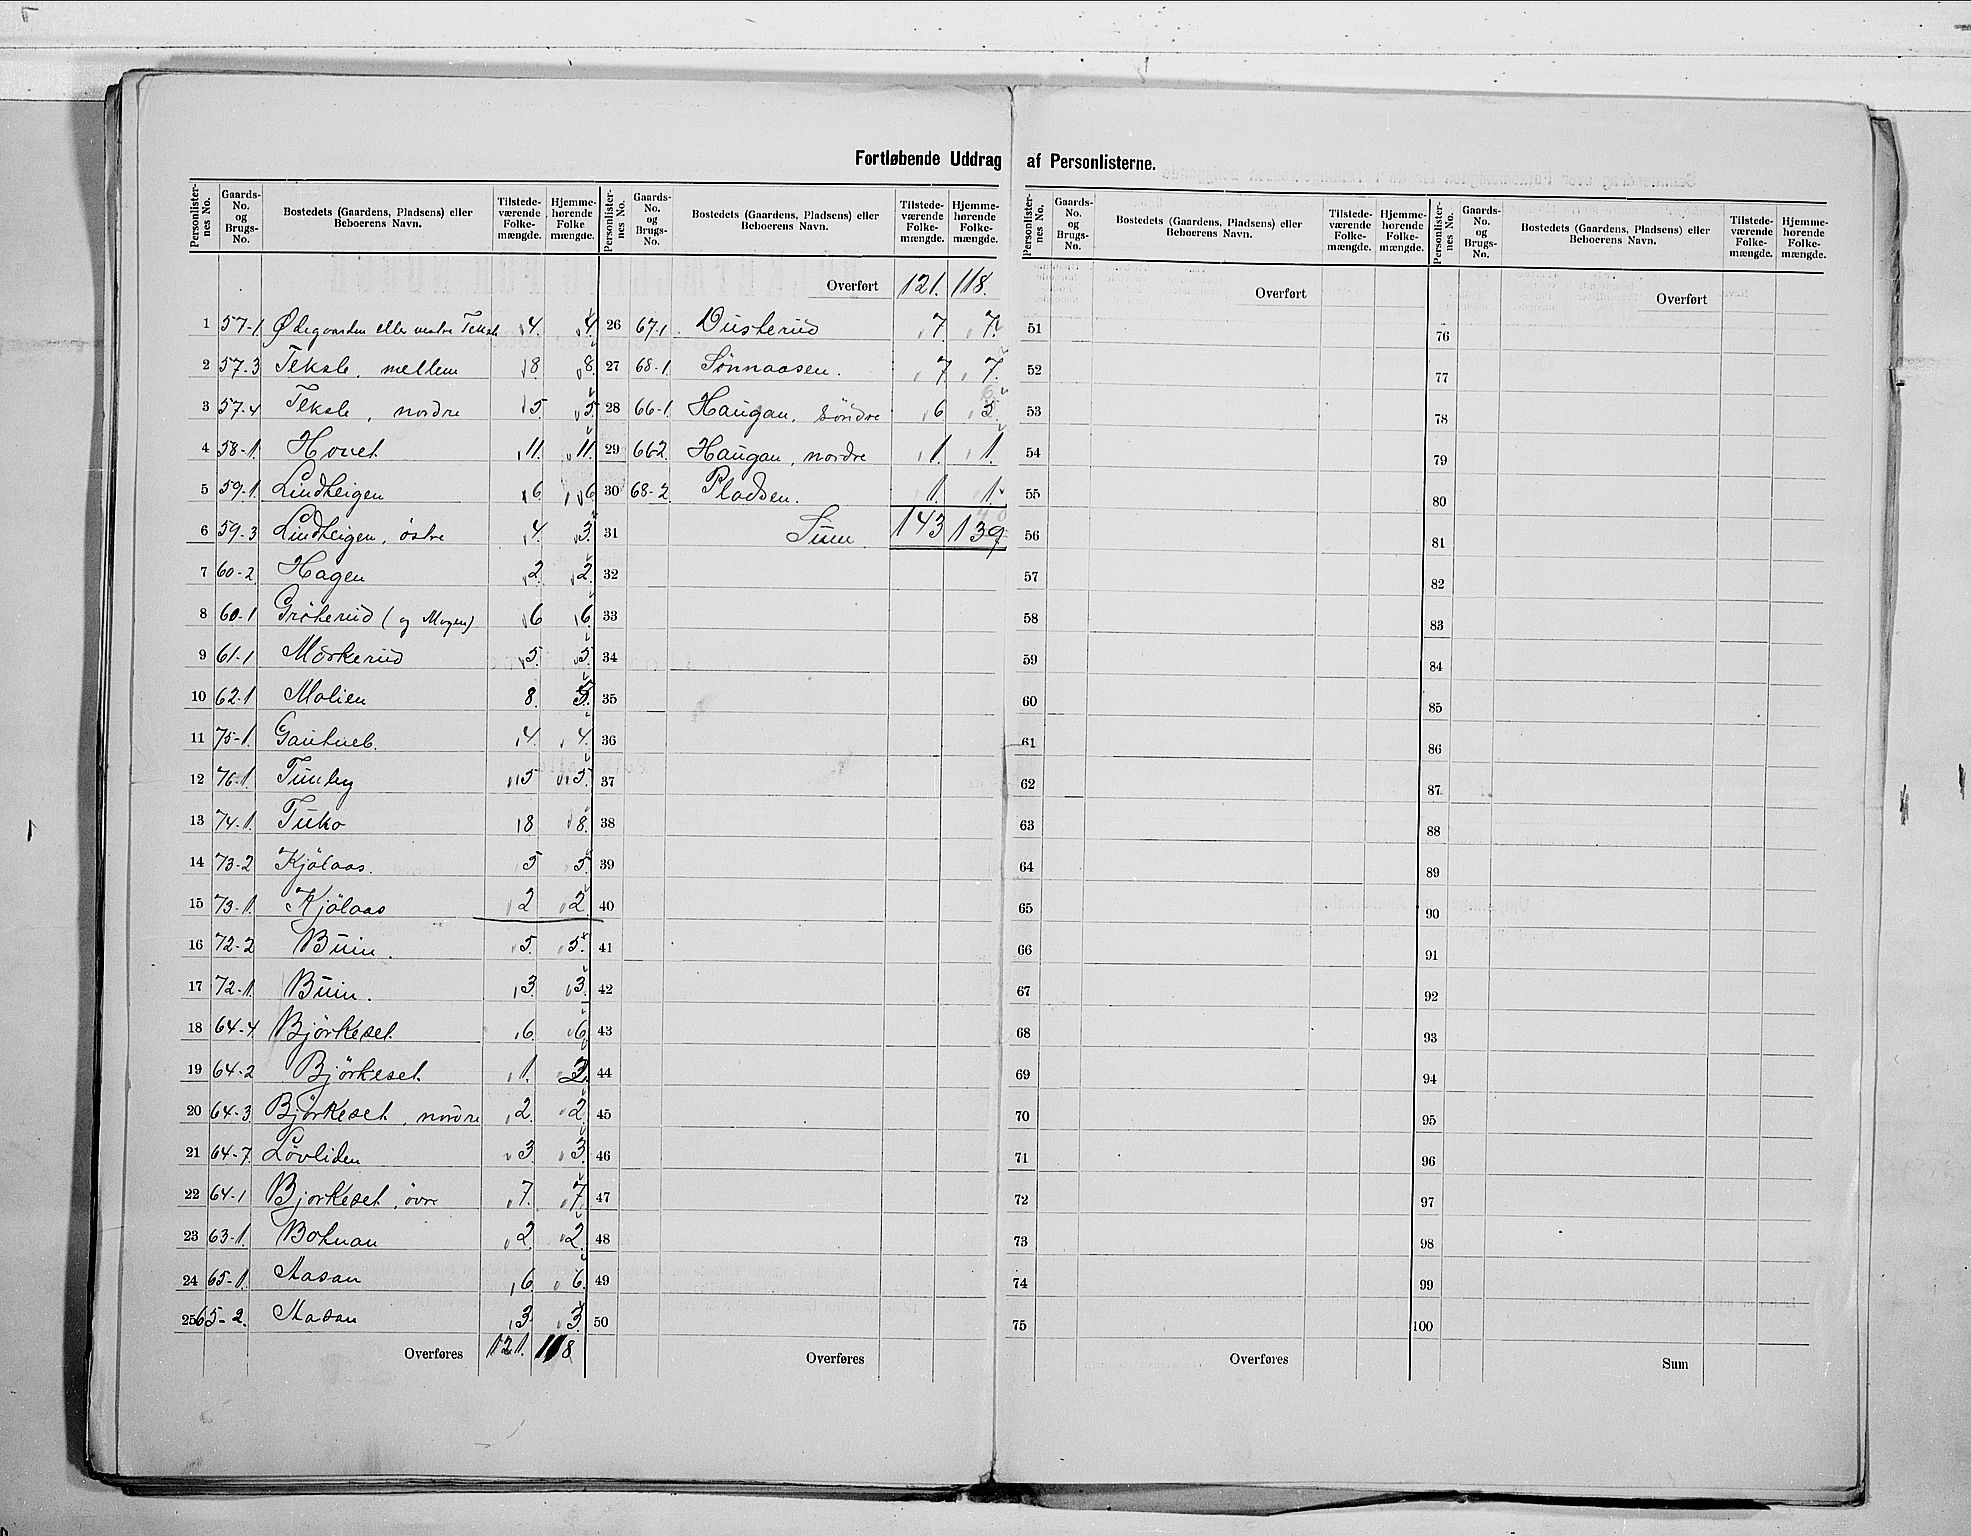 Fortløbende Uddrag af Personlisternes.
Personlister-nes No. | Gaards-No. og Brugs-No. | Bostedets (Gaardens, Pladsens) eller Beboerens Navn. | Tilstede-værende Folke-mængde. | Hjemme-hørende Folke mængde.
1 57-1 Ødegaarden eller vestre Teksle 4. 4.
2 57-3 Teksle, mellem 8 8.
3 57-4 Teksle, nordre 5. 5.
4 58-1. Hovet 11. 11.
5 59-1. Lindheigen 6. 6.
6 59-3 Lindheigen, östre 4. 3.
7 60-2. Hagen 2. 2.
8 60-1 Grökerud (og Mogen) 6 6.
9 61-1 Mörkerud 5. 5.
10 62-1 Molien 8. 5.
11 75-1. Gautueb. 4. 4.
12 76-1. Tunby 5 5.
13 74-1. Tuko 8 8.
14 73-2 Kjölaas. 5 5.
15 73-1. Kjölaas 2 2.
16 72-2 Buin. 5. 5.
17 72-1. Buin. 3. 3.
18 64-4 Björkeset. 6. 6.
19 64-2 Björkeset. 1. 2.
20 64-3 Björkeset, nordre 2. 2.
21 64-7 Lövliden 3. 3.
22 64-1 Bjorkeset, övre 7. 7.
23 63-1. Botnan 2. 2.
24 65-1. Aasan 6. 6.
25 65-2. Aasan 3. 3.
Overføres 121. 118
Personlister-nes No. | Gaards-No. og Brugs-No. | Bostedets (Gaardens, Pladsens) eller Beboerens Navn. | Tilstede-værende Folke-mængde. | Hjemme-hørende Folke-mængde.
Overført 121. 118.
26 67-1. Dusterud 7. 7.
27 68-1. Sønnaasen. 7 7.
28 66-1. Haugan, söndre 6 5.
29 66-2. Haugan, nordre 1. 1.
30 68-2. Pladsen. 1. 1.
31 Sum 143 139
32
33
34
35
36
37
38
39
40
41
42
43
44
45
46
47
48
49
50
Overføres
Personlister-nes No. | Gaards-No. og Brugs-No. | Bostedets (Gaardens, Pladsens) eller Beboerens Navn. | Tilstede-værende Folke-mængde. | Hjemme-hørende Folke-mængde.
Overført
51
52
53
54
55
56
57
58
59
60
61
62
63
64
65
66
67
68
69
70
71
72
73
74
75
Overføres
Personlister-nes No. | Gaards-No. og Brugs-No. | Bostedets (Gaardens, Pladsens) eller Beboerens Navn. | Tilstede-værende Folke-mængde. | Hjemme-hørende Folke-mængde.
Overført
76
77
78
79
80
81
82
83
84
85
86
87
88
89
90
91
92
93
94
95
96
97
98
99
100
Sum